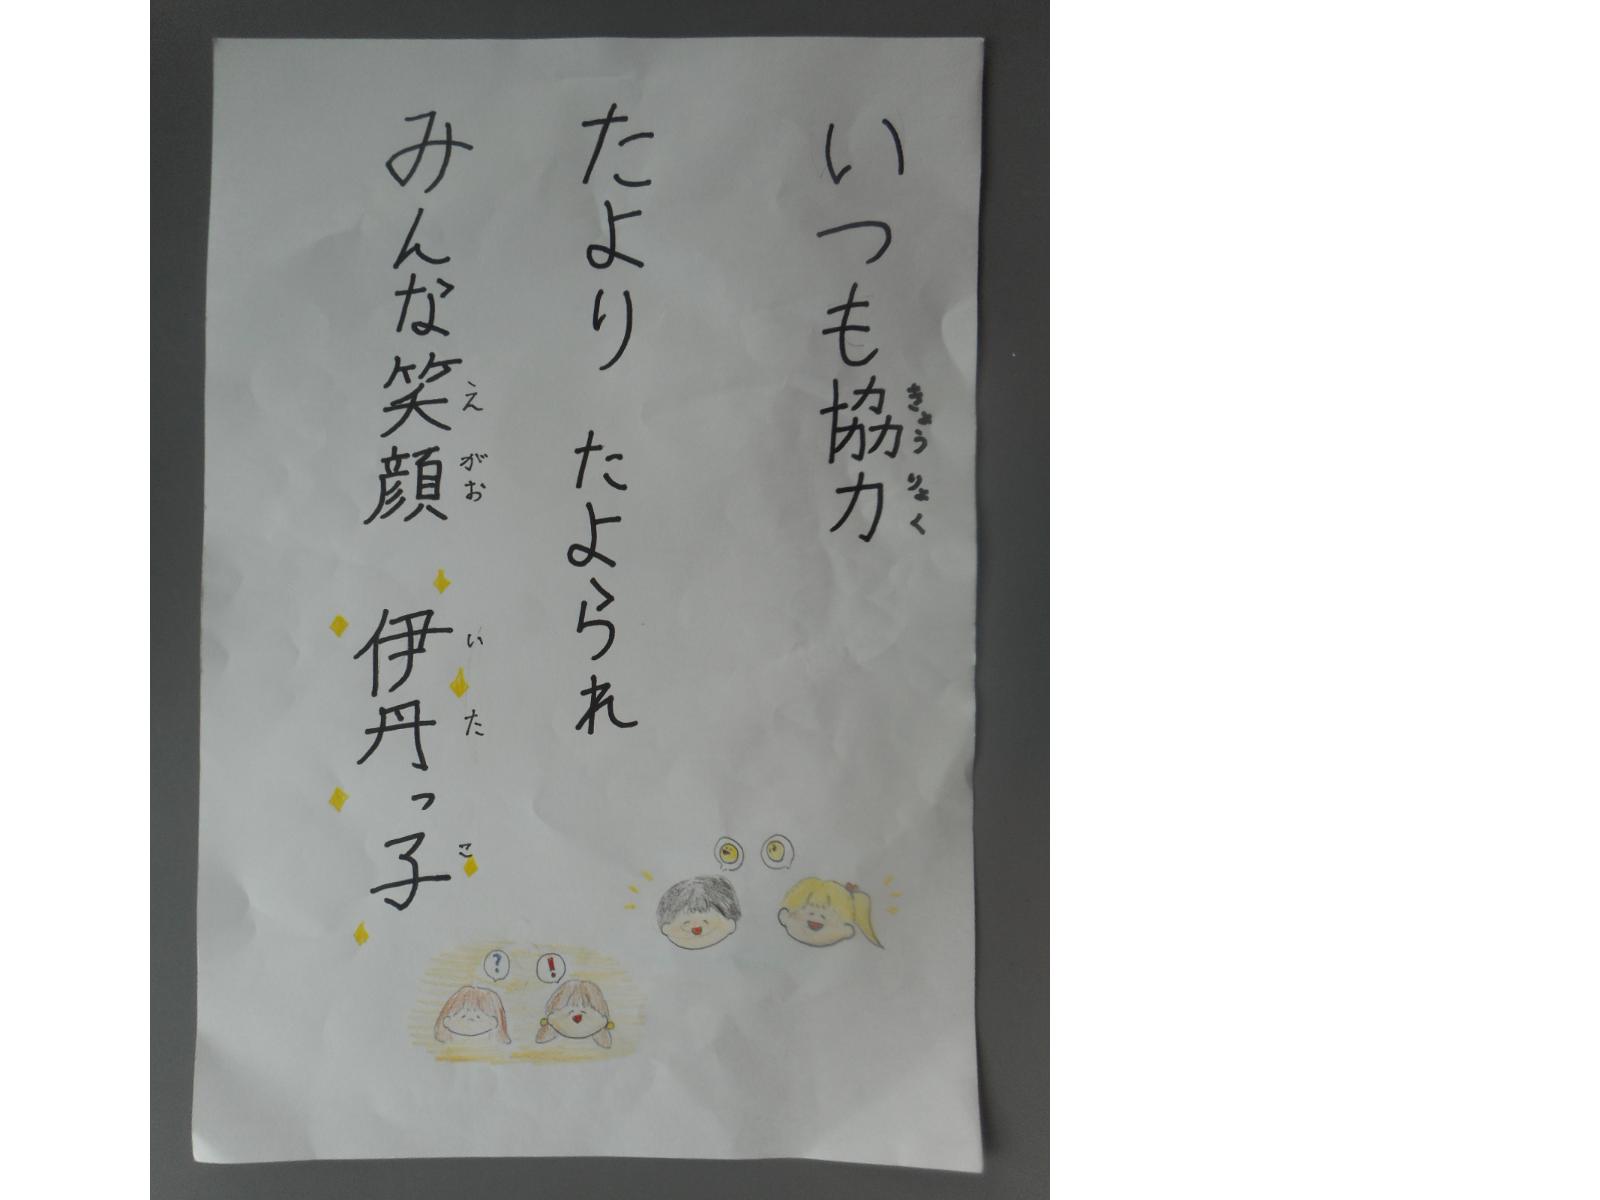 いつも協力
きょうりょく
たより たよられ
みんな笑顔 伊丹っ子
えがお いた こ
?
!